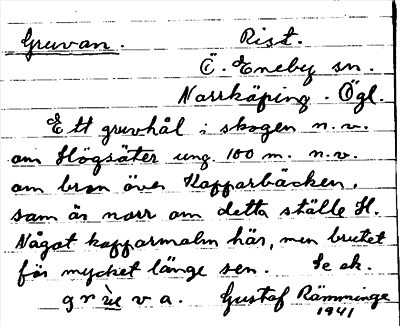 Gruvan. Rist.
Ö. Eneby sn.
Norrköping. Ögl.
Ett gruvhål i skogen n.v.
om Högsäter ung. 100 m. n.v.
om bron över Kopparbäcken,
som är norr om detta ställe H.
Något kopparmalm här, men brutet
för mycket länge sen. Se ek.
grùva. Gustaf Rämminge
1941